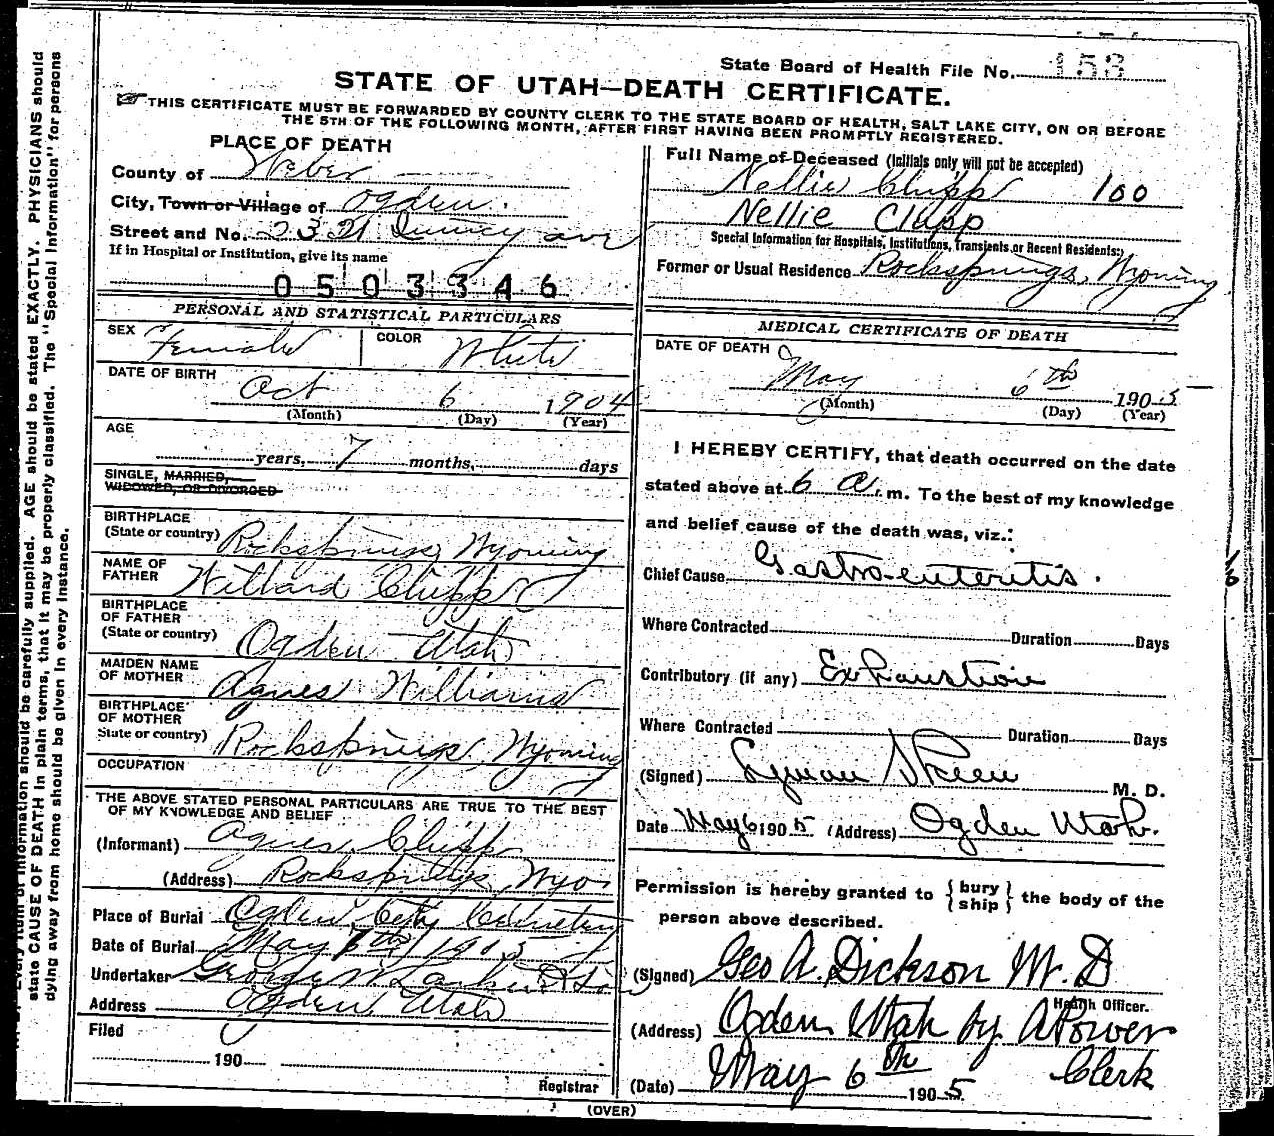 State Board of Health File No. 153
STATE OF UTAH—DEATH CERTIFICATE.
THIS CERTIFICATE MUST BE FORWARDED BY COUNTY CLERK TO THE STATE BOARD OF HEALTH, SALT LAKE CITY, ON OR BEFORE
THE 5TH OF THE FOLLOWING MONTH, AFTER FIRST HAVING BEEN PROMPTLY REGISTERED.
PLACE OF DEATH
County of Weber
City, Town or Village of Ogden.
Street and No. 2321 Quincy ave
If in Hospital or Institution, give its name
0503346
PERSONAL AND STATISTICAL PARTICULARS
SEX Female COLOR White
DATE OF BIRTH Oct 6 1904
(Month) (Day) (Year)
AGE
years, 7 months, days
SINGLE, MARRIED,
WIDOWED, OR DIVORCED
BIRTHPLACE
(State or country) Rocksprings Wyoming
NAME OF
FATHER Willard Clapp
BIRTHPLACE
OF FATHER
(State or country) Ogden Utah
MAIDEN NAME
OF MOTHER Agnes Williams
BIRTHPLACE
OF MOTHER
State or country) Rocksprings, Wyoming
OCCUPATION
THE ABOVE STATED PERSONAL PARTICULARS ARE TRUE TO THE BEST
OF MY KNOWLEDGE AND BELIEF
(Informant) Agnes Clapp
(Address) Rocksprings, Wyo
Place of Burial Ogden City Cemetery
Date of Burial May 1905
Undertaker George W Larkin & Son
Address Ogden Utah
Filed
190
Registrar
(OVER)
Full Name of Deceased (Initials only will not be accepted)
Nellie Clapp 100
Nellie Clapp
Special Information for Hospitals, Institutions, Transients or Recent Residents:
Former or Usual Residence Rocksprings, Wyoming
MEDICAL CERTIFICATE OF DEATH
DATE OF DEATH
May 6th 1905
(Month) (Day) (Year)
I HEREBY CERTIFY, that death occurred on the date
stated above at 6 a.m. To the best of my knowledge
and belief cause of the death was, viz.:
Chief Cause Gastro-enteritis.
Where Contracted Duration Days
Contributory (if any) Exhaustion
Where Contracted Duration Days
(Signed) Lyman Skeen M. D.
Date May 6 1905 (Address) Ogden Utah.
Permission is hereby granted to {bury ship} the body of the
person above described.
(Signed) Geo A. Dickson M.D
Health Officer.
(Address) Ogden Utah by A Power
Clerk
(Date) May 6th 1905
state CAUSE OF DEATH in plain terms, that it may be properly classified. The "Special Information" for persons
dying away from home should be given in every instance.
information should be carefully supplied. AGE should be stated EXACTLY. PHYSICIANS should